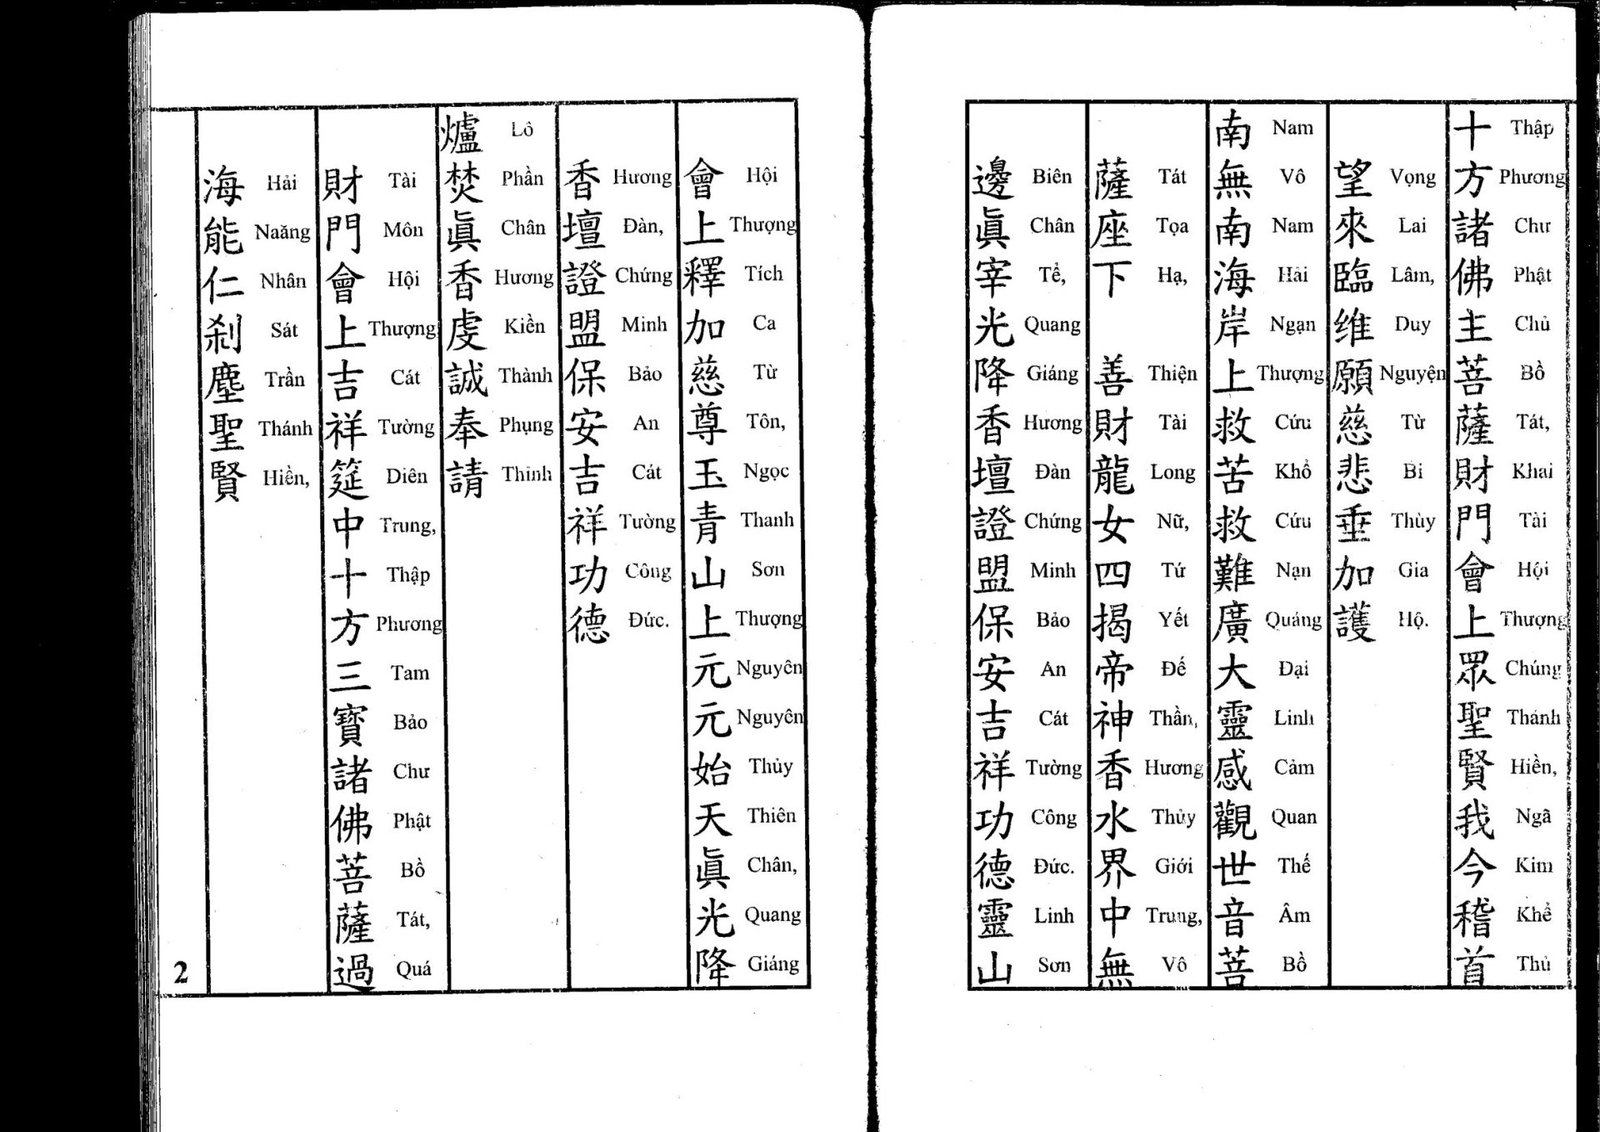 十方諸佛主菩薩財門會上眾聖賢我今稽首
Thập Phương Chư Phật Chủ Bồ Tát, Khai Tài Hội Thượng Chúng Thánh Hiền, Ngã Kim Khể Thủ
望來臨维願慈悲垂加護
Vọng Lai Lâm, Duy Nguyện Từ Bi Thùy Gia Hộ.
南無南海岸上救苦救難廣大靈感觀世音菩
Nam Vô Nam Hải Ngạn Thượng Cứu Khổ Cứu Nạn Quảng Đại Linh Cảm Quan Thế Âm Bồ
薩座下 善財龍女四揭帝神香水界中無
Tát Tọa Hạ, Thiện Tài Long Nữ, Tứ Yết Đế Thần, Hương Thủy Giới Trung, Vô
邊眞宰光降香壇證盟保安吉祥功德靈山
Biên Chân Tể, Quang Giáng Hương Đàn Chứng Minh Bảo An Cát Tường Công Đức. Linh Sơn
會上釋加慈尊玉青山上元元始天眞光降
Hội Thượng Tích Ca Từ Tôn, Ngọc Thanh Sơn Thượng Nguyên Nguyên Thủy Thiên Chân, Quang Giáng
香壇證盟保安吉祥功德
Hương Đàn, Chứng Minh Bảo An Cát Tường Công Đức.
爐焚眞香虔誠奉請
Lô Phần Chân Hương Kiền Thành Phụng Thỉnh
財門會上吉祥筵中十方三寶諸佛菩薩過
Tài Môn Hội Thượng Cát Tường Diên Trung, Thập Phương Tam Bảo Chư Phật Bồ Tát, Quá
海能仁剎塵聖賢
Hải Naăng Nhân Sát Trần Thánh Hiền,
2